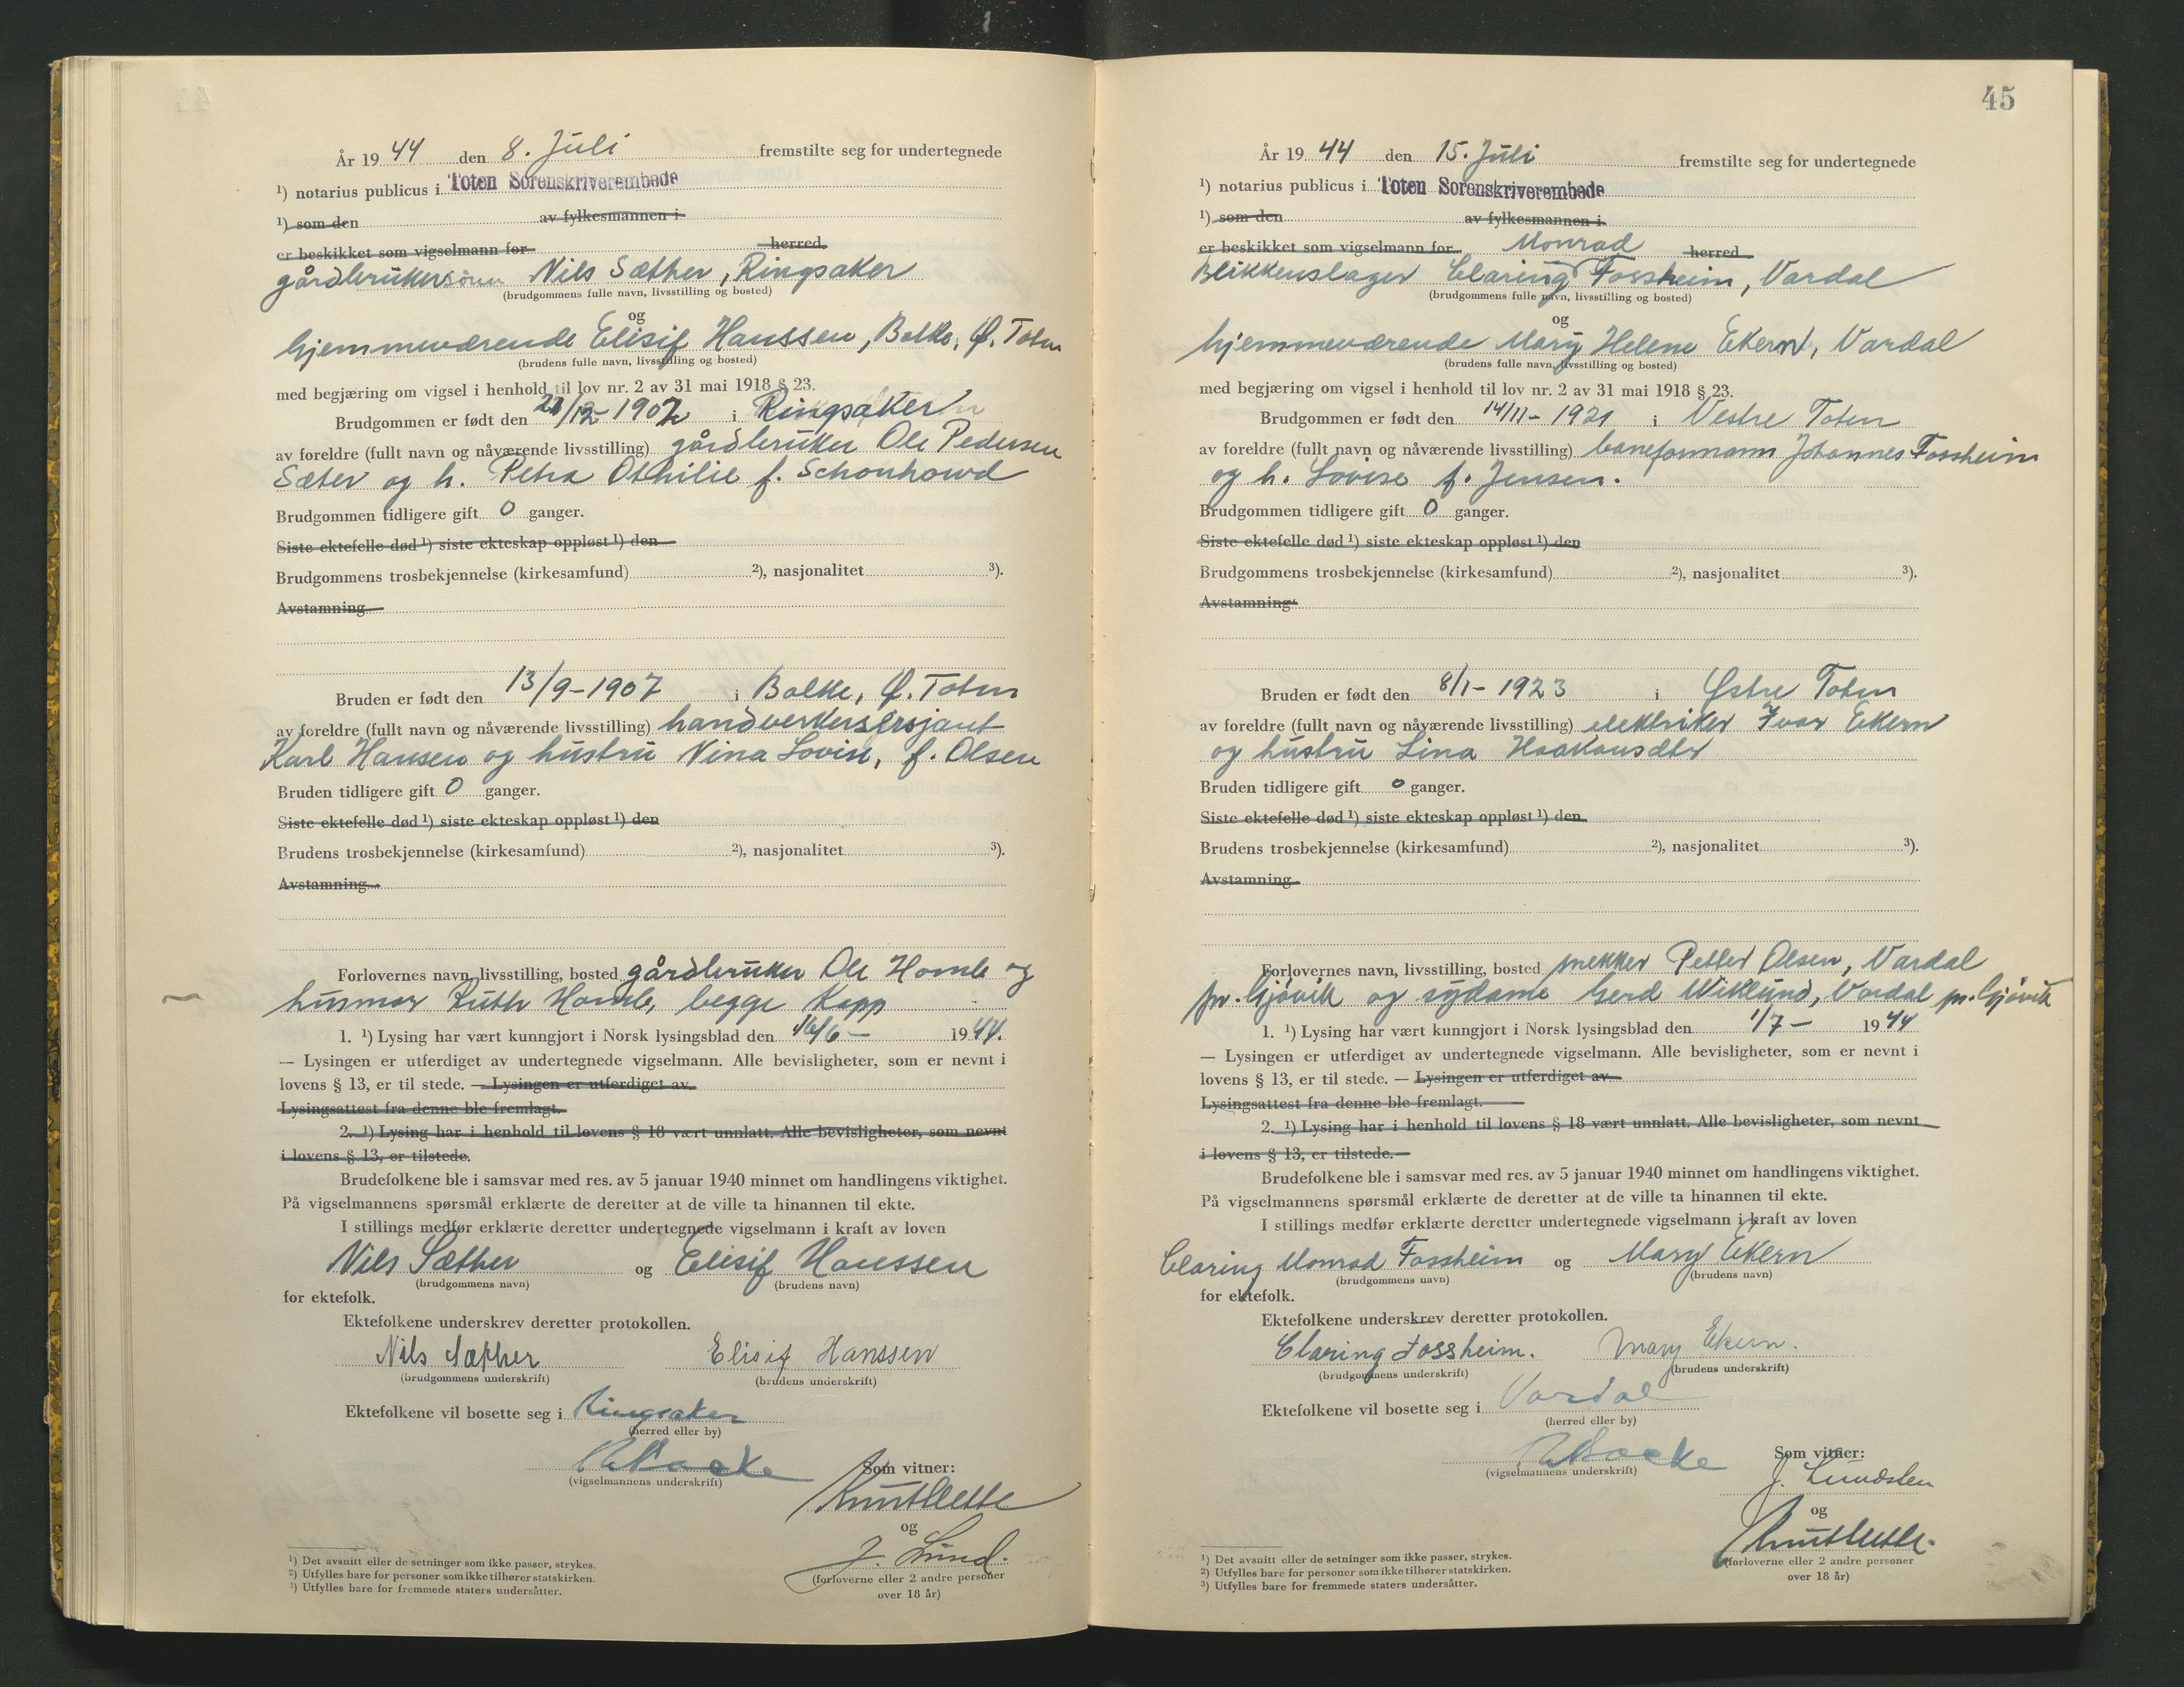 År 19 44 den 8. Juli fremstilte seg for undertegnede
¹) notarius publicus i Toten Sorenskriverembede
¹) som den av fylkesmannen i
er beskikket som vigselmann for herred.
gårdbrukersønn Nils Sæther, Ringsaker
(brudgommens fulle navn, livsstilling og bosted)
og
hjemmeværende Elisif Hanssen, Balke, Ø. Toten
(brudens fulle navn, livsstilling og bosted)
med begjæring om vigsel i henhold til lov nr. 2 av 31 mai 1918 § 23.
Brudgommen er født den /12-1902 i Ringsaker
av foreldre (fullt navn og nåværende livsstilling) gårdbruker Ole Pedersen
Sæter og h. Petra Othilie f. Schonhowd
Brudgommen tidligere gift 0 ganger.
Siste ektefelle død ¹) siste ekteskap oppløst ¹) den
Brudgommens trosbekjennelse (kirkesamfund) ²), nasjonalitet ³).
Avstamning
Bruden er født den 13/9-1907 i Balke, Ø. Toten
av foreldre (fullt navn og nåværende livsstilling) handverkersersjant
Karl Hansen og hustru Nina Lovise, f. Olsen
Bruden tidligere gift 0 ganger.
Siste ektefelle død ¹) siste ekteskap oppløst ¹) den
Brudens trosbekjennelse (kirkesamfund) ²), nasjonalitet ³).
Avstamning
Forlovernes navn, livsstilling, bosted gårdbruker Ole Homle og
husmor Ruth Homle, begge Kapp
1. ¹) Lysing har vært kunngjort i Norsk lysingsblad den 16/6 - 1944.
— Lysingen er utferdiget av undertegnede vigselmann. Alle bevisligheter, som er nevnt i
lovens § 13, er til stede. — Lysingen er utferdiget av
Lysingsattest fra denne ble fremlagt.
2. ¹) Lysing har i henhold til lovens § 18 vært unnlatt. Alle bevisligheter, som nevnt
i lovens § 13, er tilstede.
Brudefolkene ble i samsvar med res. av 5 januar 1940 minnet om handlingens viktighet.
På vigselmannens spørsmål erklærte de deretter at de ville ta hinannen til ekte.
I stillings medfør erklærte deretter undertegnede vigselmann i kraft av loven
Nils Sæther og Elisif Hanssen
(brudgommens navn) (brudens navn)
for ektefolk.
Ektefolkene underskrev deretter protokollen.
Nils Sæther Elisif Hanssen
(brudgommens underskrift) (brudens underskrift)
Ektefolkene vil bosette seg i Ringsaker
(herred eller by)
Som vitner:
(vigselmannens underskrift)
og
J. Lund.
(forloverne eller 2 andre personer
over 18 år)
¹) Det avsnitt eller de setninger som ikke passer, strykes.
²) Utfylles bare for personer som ikke tilhører statskirken.
³) Utfylles bare for fremmede staters undersåtter.
45
År 19 44 den 15. Juli fremstilte seg for undertegnede
¹) notarius publicus i Toten Sorenskriverembede
¹) som den av fylkesmannen i
er beskikket som vigselmann for Monrad herred
Blikkenslager Claring Fossheim, Vardal
(brudgommens fulle navn, livsstilling og bosted)
og
hjemmeværende Mary Helene Ekern, Vardal
(brudens fulle navn, livsstilling og bosted)
med begjæring om vigsel i henhold til lov nr. 2 av 31 mai 1918 § 23.
Brudgommen er født den 14/11-1921 i Vestre Toten
av foreldre (fullt navn og nåværende livsstilling) baneformann Johannes Fossheim
og h. Lovise f. Jensen.
Brudgommen tidligere gift 0 ganger.
Siste ektefelle død ¹) siste ekteskap oppløst ¹) den
Brudgommens trosbekjennelse (kirkesamfund) ²), nasjonalitet ³).
Avstamning
Bruden er født den 8/1-1923 i Østre Toten
av foreldre (fullt navn og nåværende livsstilling) elektriker Ivar Ekern
og hustru Lina Haakonsæter
Bruden tidligere gift 0 ganger.
Siste ektefelle død ¹) siste ekteskap oppløst ¹) den
Brudens trosbekjennelse (kirkesamfund) ²), nasjonalitet ³).
Avstamning
Forlovernes navn, livsstilling, bosted snekker Petter Olsen, Vardal
pr. Gjøvik og sydame Gerd Wiklund, Vardal pr. Gjøvik
1. ¹) Lysing har vært kunngjort i Norsk lysingsblad den 1/7 - 1944
— Lysingen er utferdiget av undertegnede vigselmann. Alle bevisligheter, som er nevnt i
lovens § 13, er til stede. — Lysingen er utferdiget av
Lysingsattest fra denne ble fremlagt.
2. ¹) Lysing har i henhold til lovens § 18 vært unnlatt. Alle bevisligheter, som nevnt
i lovens § 13, er tilstede.
Brudefolkene ble i samsvar med res. av 5 januar 1940 minnet om handlingens viktighet.
På vigselmannens spørsmål erklærte de deretter at de ville ta hinannen til ekte.
I stillings medfør erklærte deretter undertegnede vigselmann i kraft av loven
Claring Monrad Fossheim og Mary Ekern
(brudgommens navn) (brudens navn)
for ektefolk.
Ektefolkene underskrev deretter protokollen.
Claring Fossheim. Mary Ekern.
(brudgommens underskrift) (brudens underskrift)
Ektefolkene vil bosette seg i Vardal
(herred eller by)
Som vitner:
(vigselmannens underskrift)
og
(forloverne eller 2 andre personer
over 18 år)
¹) Det avsnitt eller de setninger som ikke passer, strykes.
²) Utfylles bare for personer som ikke tilhører statskirken.
³) Utfylles bare for fremmede staters undersåtter.